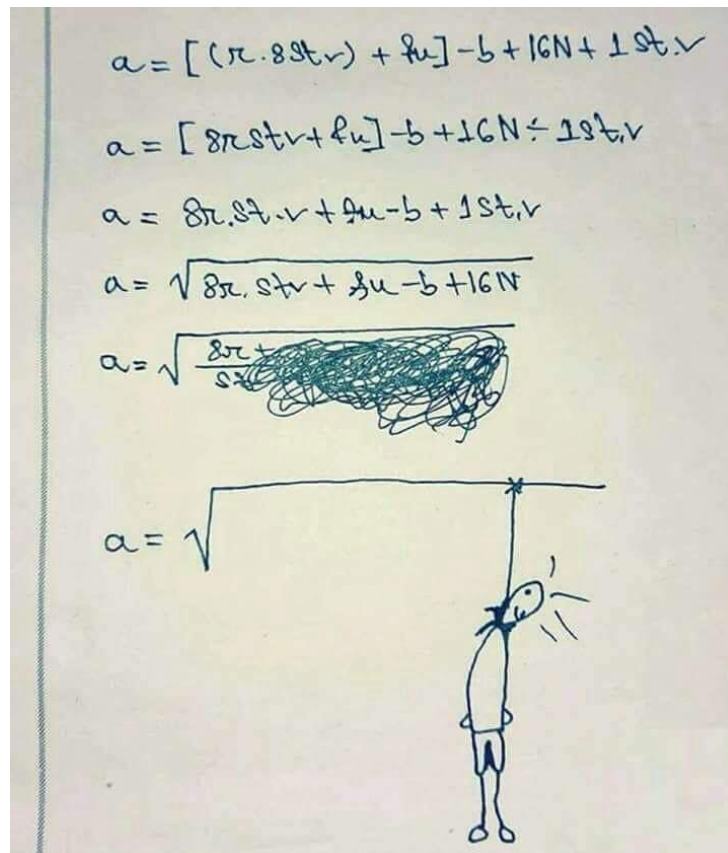 a = [(r.8Stv) + fu] - b + 16N + 1 st.v
a = [8rstv + fu] - b + 16N ÷ 1st.v
a = 8r.St.v + fu - b + 1St.v
a = √8r.Stv + fu - b + 16N
a = √8r +
a = √